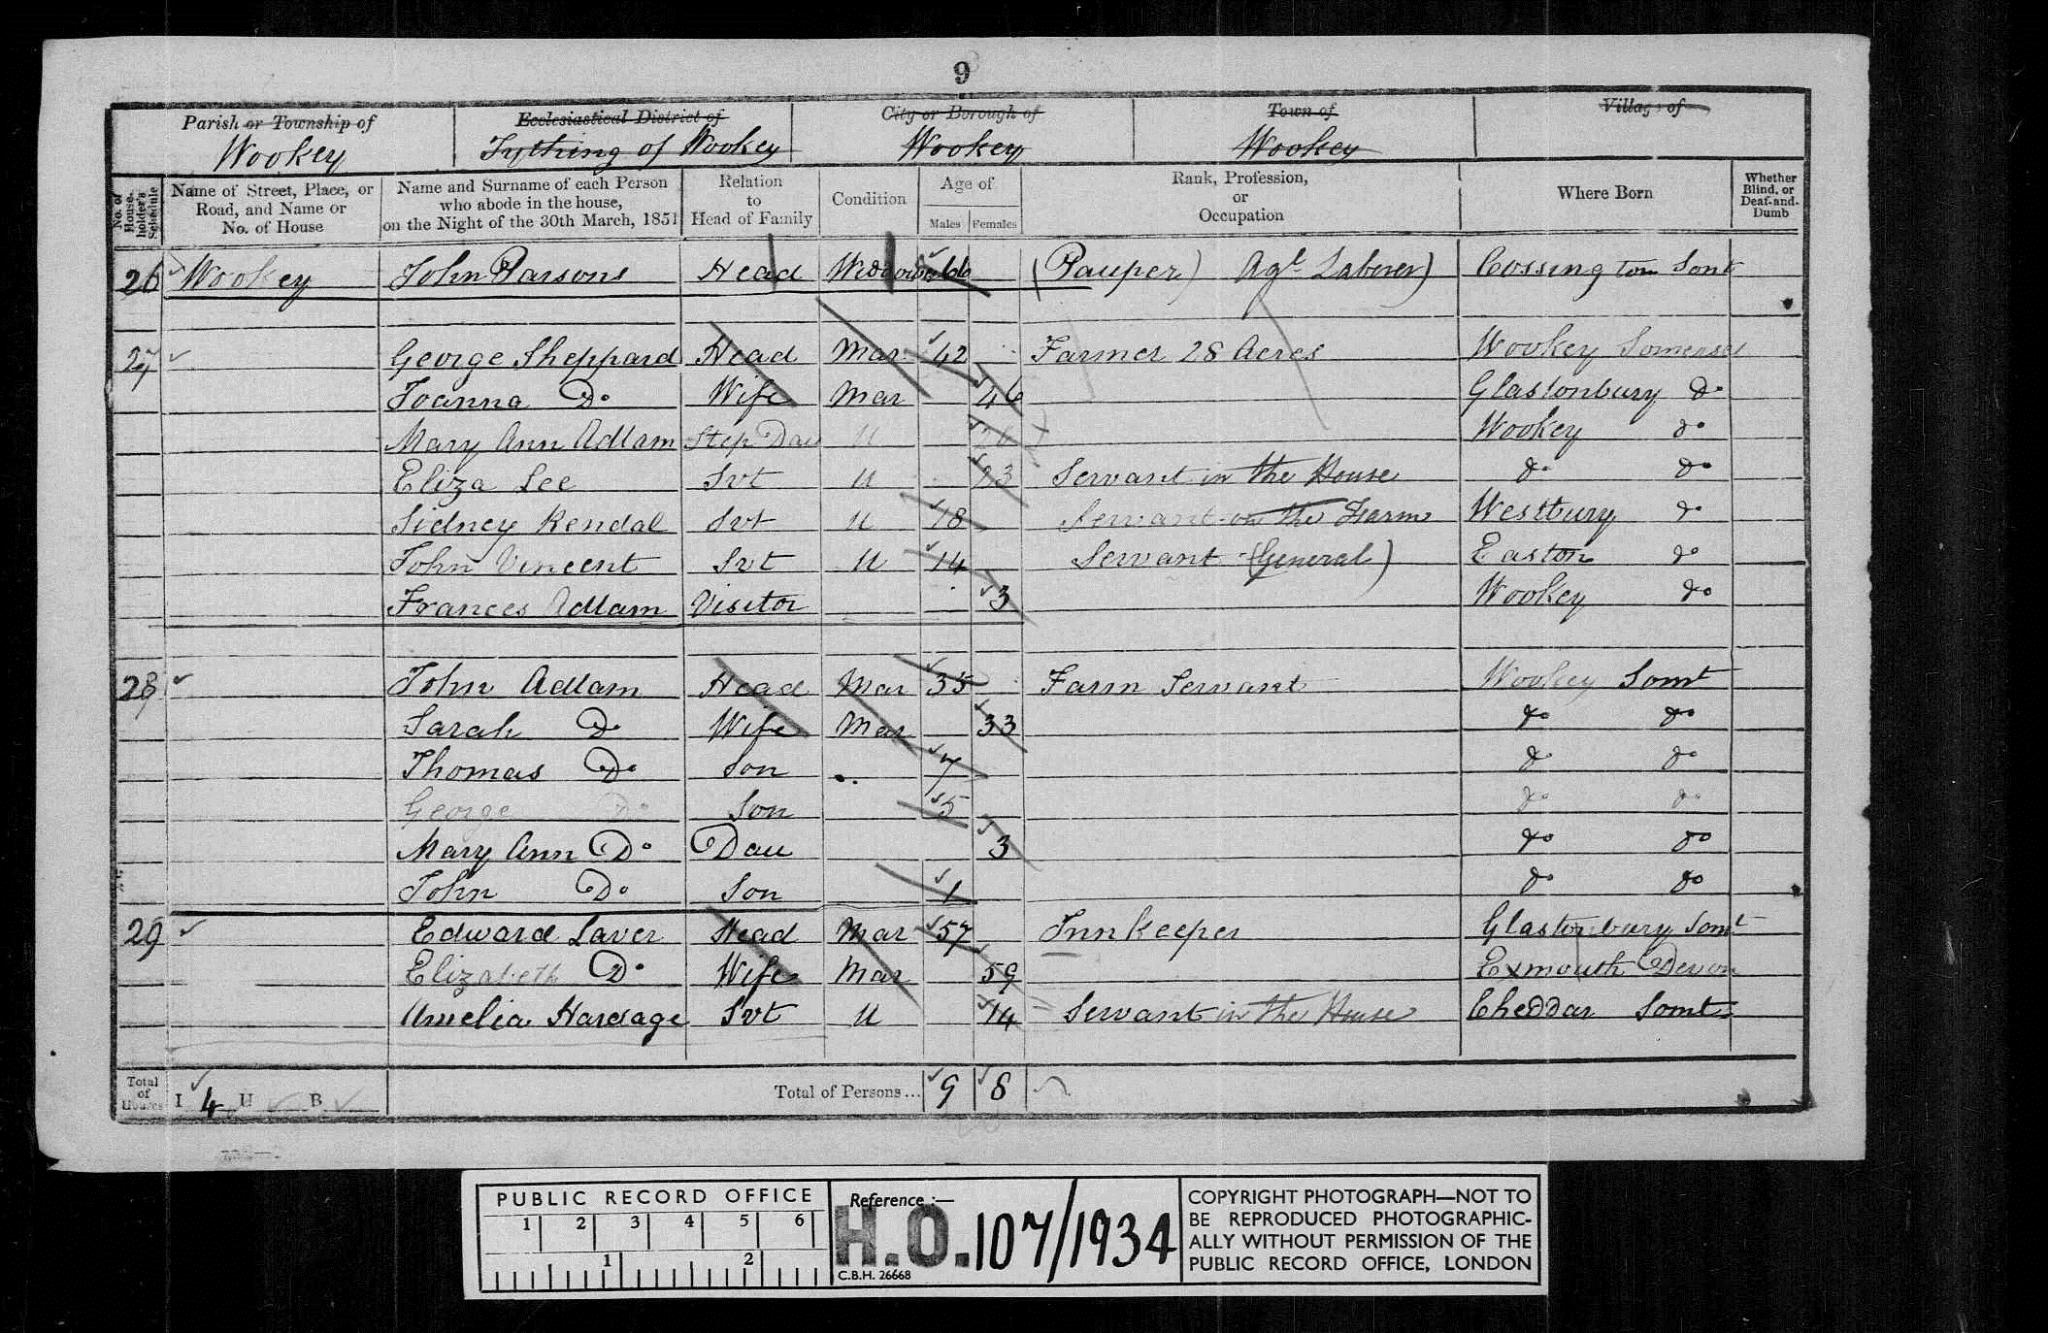 9
Parish or Township of Ecclesiastical District of City or Borough of Town of Village of
Wookey Tything of Wookey Wookey Wookey
No. of Householder's Schedule Name of Street, Place, or Road, and Name or No. of House Name and Surname of each Person who abode in the house, on the Night of the 30th March, 1851 Relation to Head of Family Condition Age of Males Females Rank, Profession, or Occupation Where Born Whether Blind, or Deaf-and-Dumb
26 Wookey John Parsons Head Widower 66 (Pauper) Agl Laborer) Cossington Somt
27 George Sheppard Head Mar 42 Farmer 28 Acres Wookey Somerset
Joanna Do Wife Mar 46 Glastonbury do
Mary Ann Adlam Step Dau U Wookey do
Eliza Lee Svt U 23 Servant in the House do do
Sidney Kendal Svt U 18 Servant on the Farm Westbury do
John Vincent Svt U 14 Servant (General) Easton do
Frances Adlam Visitor 3 Wookey do
28 John Adlam Head Mar 35 Farm Servant Wookey Somt
Sarah Do Wife Mar 33 do do
Thomas Do Son 7 do do
George Do Son 5 do do
Mary Ann Do Dau 3 do do
John Do Son 1 do do
29 Edward Laver Head Mar 57 Innkeeper Glastonbury Somt
Elizabeth Do Wife Mar 59 Exmouth Devon
Amelia Hardage Svt U 14 Servant in the House Cheddar Somt
Total of Houses I 4 U B Total of Persons... 9 8
PUBLIC RECORD OFFICE
1 2 3 4 5 6
1 2
Reference :—
H.O. 107/1934
C.B.H. 26668
COPYRIGHT PHOTOGRAPH—NOT TO
BE REPRODUCED PHOTOGRAPHIC-
ALLY WITHOUT PERMISSION OF THE
PUBLIC RECORD OFFICE, LONDON